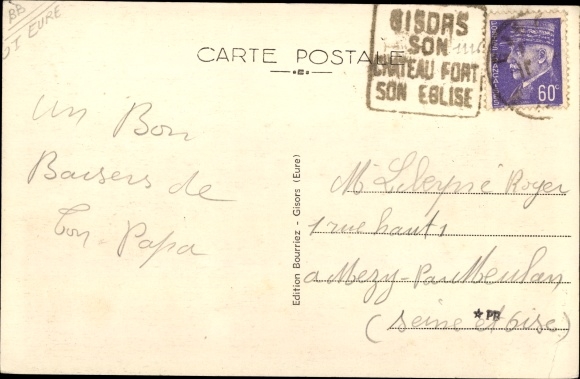 BB
DT EURE
GISORS
SON
CHATEAU FORT
SON EGLISE
60c
CARTE POSTALE
un Bon
Baisers de
ton Papa
Edition Bourriez - Gisors (Eure)
Mr Roger
1 rue haute
a Mezy-Par Meulan
(Seine et Oise)
PB